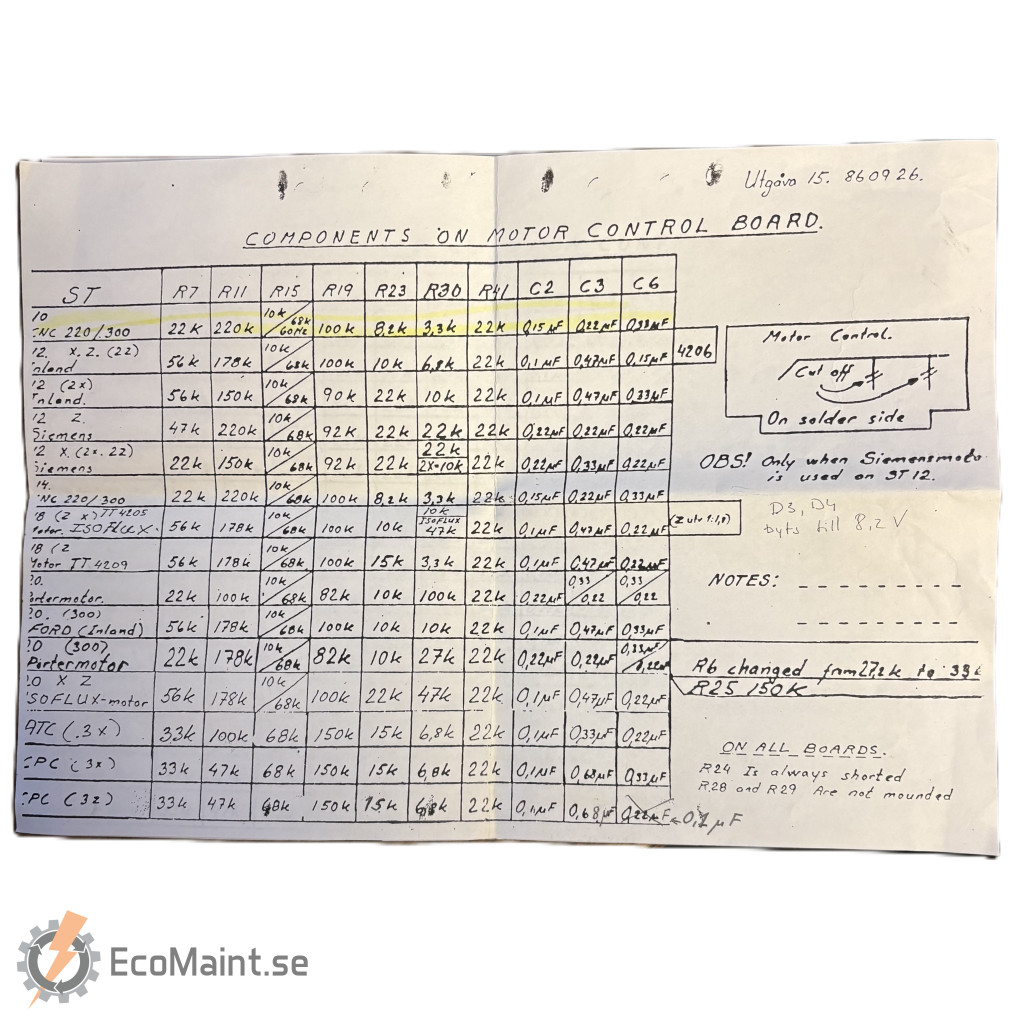 Utgåva 15. 860926.
COMPONENTS ON MOTOR CONTROL BOARD.
ST R7 R11 R15 R19 R23 R30 R41 C2 C3 C6
10
NC 220/300 22k 220k 10k/68k 60Hz 100k 8,2k 3,3k 22k 0,15µF 0,22µF 0,33µF
12. X.Z. (2z)
nland 56k 178k 10k/68k 100k 10k 6,8k 22k 0,1µF 0,47µF 0,15µF 4206
12 (2x)
nland. 56k 150k 10k/68k 90k 22k 10k 22k 0,1µF 0,47µF 0,33µF
12 Z.
Siemens 47k 220k 10k/68k 92k 22k 22k 22k 0,22µF 0,22µF 0,22µF
12 X. (2x. 2z)
Siemens 22k 150k 10k/68k 92k 22k 22k 2x10k 22k 0,22µF 0,33µF 0,22µF
14.
NC 220/300 22k 220k 10k/68k 100k 8,2k 3,3k 22k 0,15µF 0,22µF 0,33µF
18 (2 x) TT4205
Motor. ISOFLUX. 56k 178k 10k/68k 100k 10k 10k ISOFLUX 47k 22k 0,1µF 0,47µF 0,22µF
18 (2
Motor TT4209 56k 178k 10k/68k 100k 15k 3,3k 22k 0,1µF 0,47µF 0,22µF
20.
Portermotor. 22k 100k 10k/68k 82k 10k 100k 22k 0,22µF 0,33/0,22 0,33/0,22
20. (300)
FORD (Inland) 56k 178k 10k/68k 100k 10k 10k 22k 0,1µF 0,47µF 0,33µF
20 (300)
Portermotor 22k 178k 10k/68k 82k 10k 27k 22k 0,22µF 0,22µF 0,33µF/0,22µF
20 X Z
ISOFLUX-motor 56k 178k 10k/68k 100k 22k 47k 22k 0,1µF 0,47µF 0,22µF
ATC (.3x) 33k 100k 68k 150k 15k 6,8k 22k 0,1µF 0,33µF 0,22µF
CPC (3x) 33k 47k 68k 150k 15k 6,8k 22k 0,1µF 0,68µF 0,33µF
CPC (3z) 33k 47k 68k 150k 15k 6,8k 22k 0,1µF 0,68µF 0,22µF 0,1µF
Motor Control.
Cut off
On solder side
OBS! Only when Siemensmoto
is used on ST12.
D3, D4
byts till 8,2V
NOTES:
R6 changed from 27,2k to 33k
R25 150k
ON ALL BOARDS.
R24 Is always shorted
R28 and R29 Are not mounded
EcoMaint.se